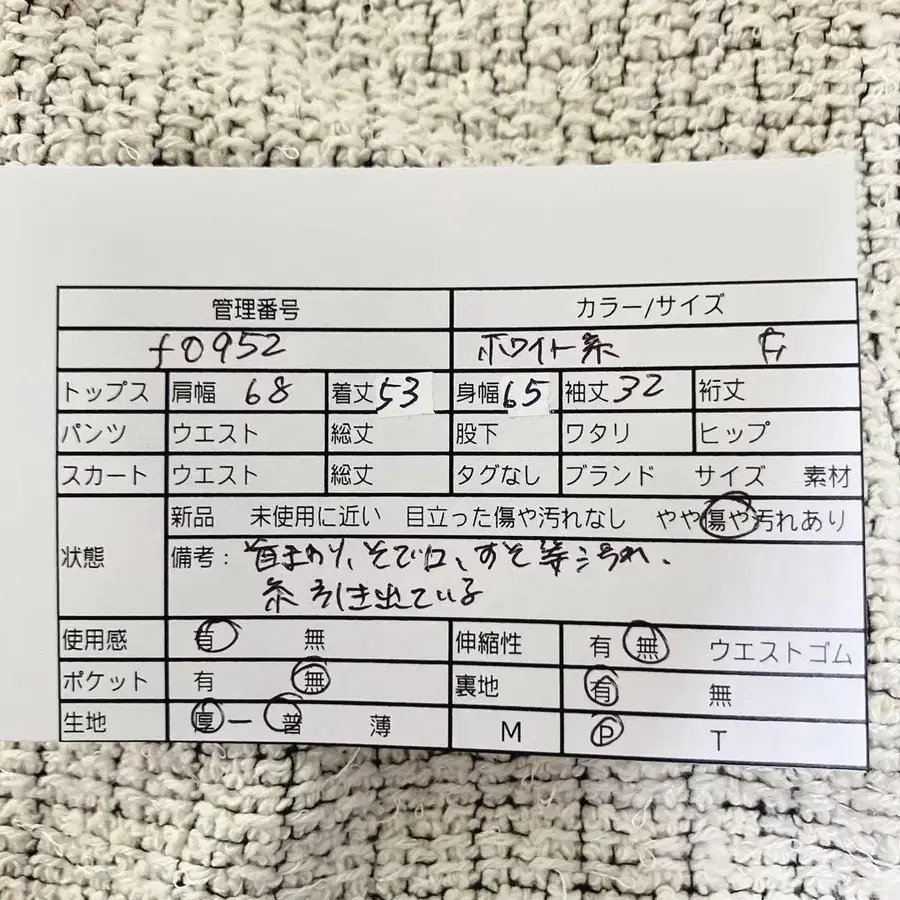 管理番号 カラー/サイズ
f0952 ホワイト系
トップス 肩幅 68 着丈 53 身幅 65 袖丈 32 裄丈
パンツ ウエスト 総丈 股下 ワタリ ヒップ
スカート ウエスト 総丈 タグなし ブランド サイズ 素材
新品 未使用に近い 目立った傷や汚れなし やや傷や汚れあり
状態 備考: 首まわり、そで口、すそ等汚れ、
糸引き出ている
使用感 有 無 伸縮性 有 無 ウエストゴム
ポケット 有 無 裏地 有 無
生地 厚 ー 普 薄 M P T